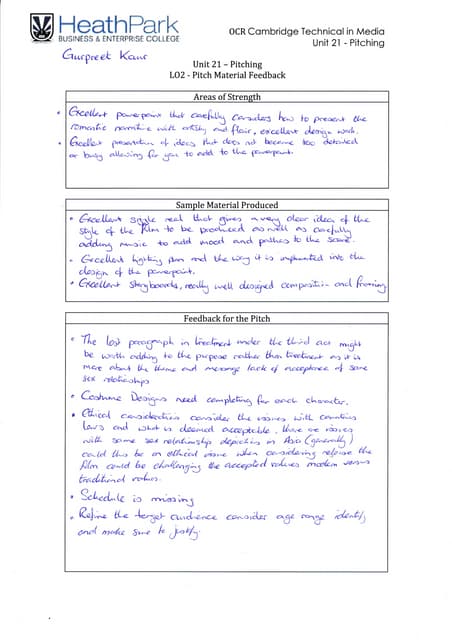 HeathPark
BUSINESS & ENTERPRISE COLLEGE
OCR Cambridge Technical in Media
Unit 21 - Pitching
Gurpreet Kaur
Unit 21 – Pitching
LO2 - Pitch Material Feedback
Areas of Strength
• Excellent powerpoint that carefully considers how to present the
romantic narrative with artistry and flair, excellent design work.
• Excellent presentation of ideas that does not become too detailed
or busy allowing for you to add to the powerpoint.
Sample Material Produced
• Excellent style reel that gives a very clear idea of the
style of the film to be produced as well as carefully
adding music to add mood and pathos to the scene.
• Excellent lighting plan and the way it is implemented into the
design of the powerpoint.
• Excellent storyboards, really well designed composition and framing
Feedback for the Pitch
• The last paragraph in treatment under the third act might
be worth adding to the purpose rather than treatment as it is
more about the theme and message lack of acceptance of same
sex relationships
• Costume Designs need completing for each character.
• Ethical considerations consider the issues with countries
laws and what is deemed acceptable, there are issues
with same sex relationship depiction in Asia (generally)
could this be an ethical issue when considering release the
film could be challenging the accepted values modern versus
traditional values.
• Schedule is missing
• Refine the target audience consider age range identify
and make sure to justify.